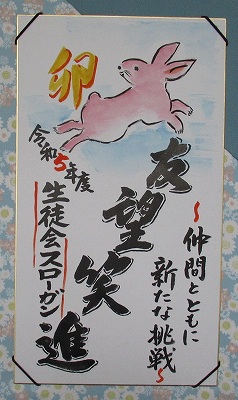 卯
令和5年度
生徒会スローガン
友望笑進
～仲間とともに
新たな挑戦～